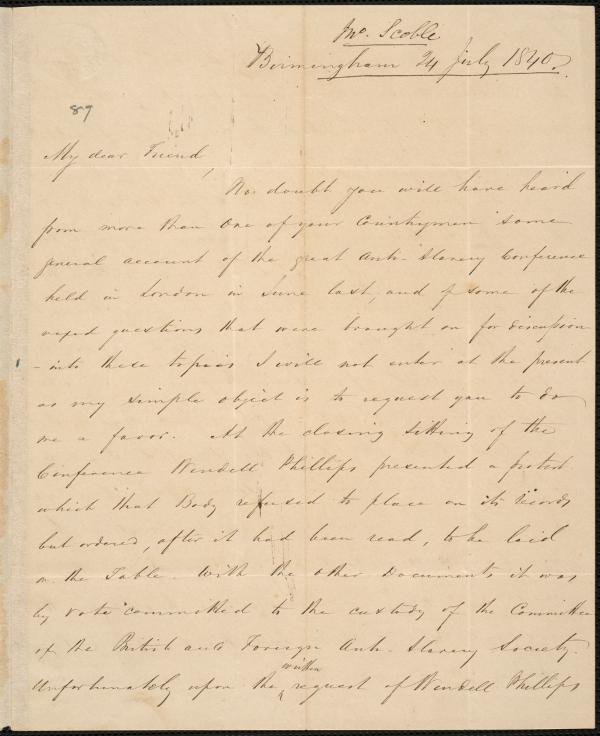 Mr. Scoble
Birmingham 24 July 1840.
89
My dear Friend,
No doubt you will have heard
from more than one of your Countrymen some
general account of the great Anti-Slavery Conference
held in London in June last, and of some of the
vexed questions that were brought on for discussion
- into these topics I will not enter at the present
as my simple object is to request you to do
me a favor. At the closing sitting of the
Conference Wendell Phillips presented a protest
which that Body refused to place on its records
but ordered, after it had been read, to be laid
on the Table. With the other Documents it was
by vote committed to the custody of the Committee
of the British and Foreign Anti-Slavery Society.
written
Unfortunately upon the request of Wendell Phillips